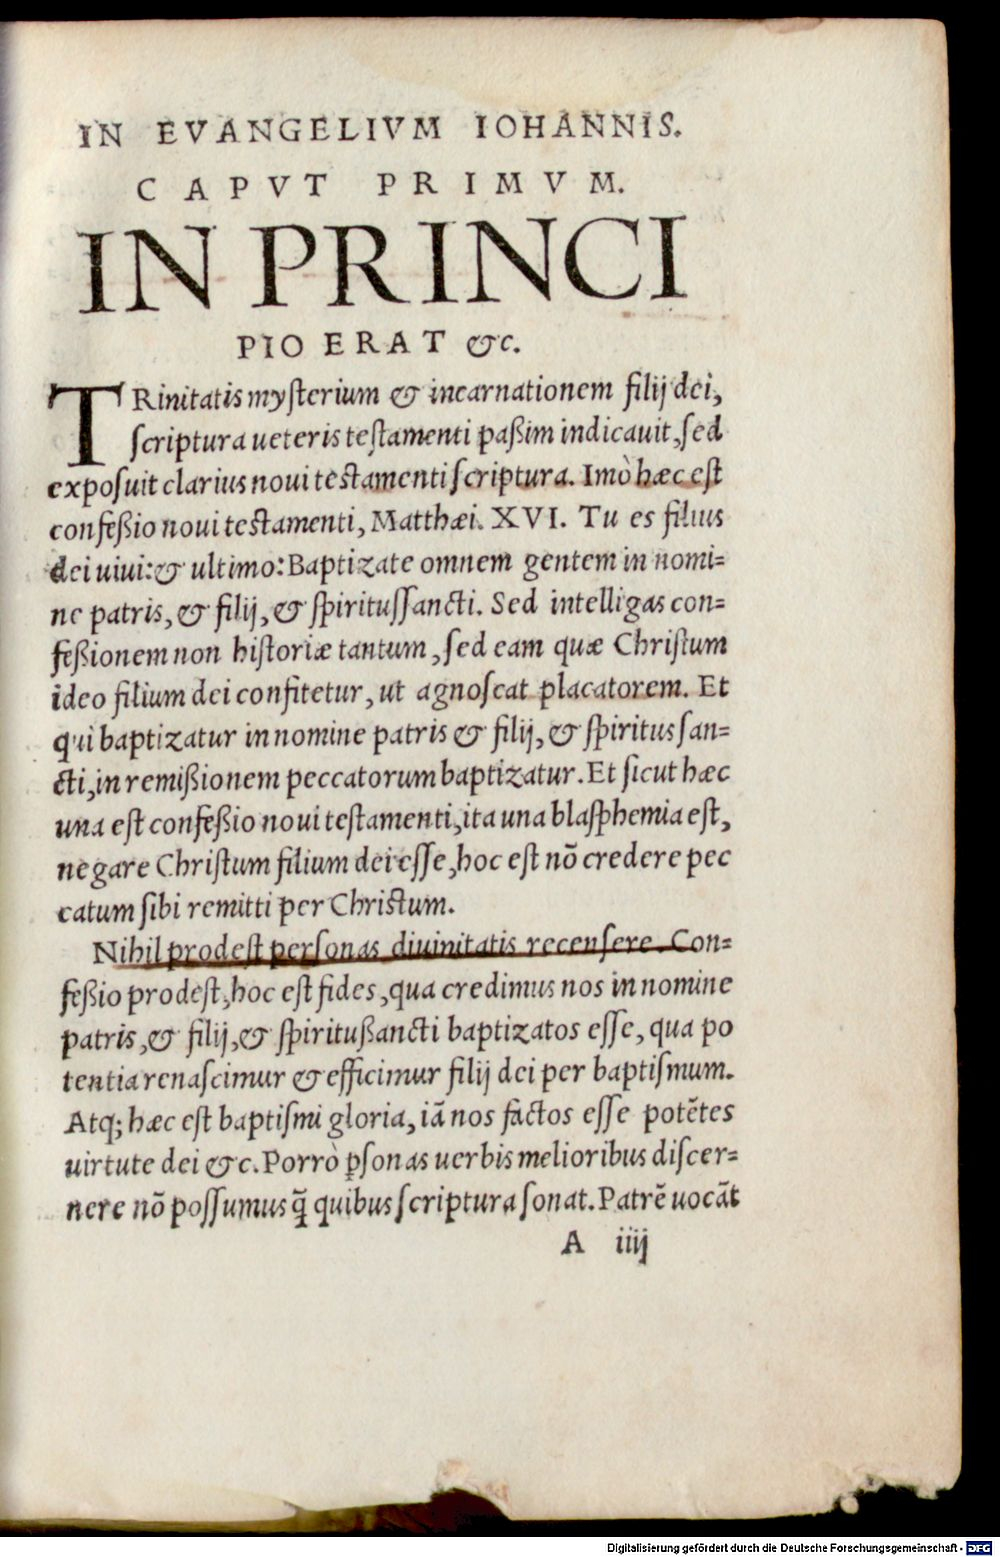 IN EVANGELIVM IOHANNIS.
CAPVT PRIMVM.
IN PRINCI
PIO ERAT &c.
TRinitatis mysterium & incarnationem filij dei,
scriptura ueteris testamenti paßim indicauit, sed
exposuit clarius noui testamenti scriptura. Imò hæc est
confeßio noui testamenti, Matthæi. XVI. Tu es filius
dei uiui: & ultimo: Baptizate omnem gentem in nomi=
ne patris, & filij, & spiritussancti. Sed intelligas con=
feßionem non historiæ tantum, sed eam quæ Christum
ideo filium dei confitetur, ut agnoscat placatorem. Et
qui baptizatur in nomine patris & filij, & spiritus san=
cti, in remißionem peccatorum baptizatur. Et sicut hæc
una est confeßio noui testamenti, ita una blasphemia est,
negare Christum filium dei esse, hoc est nõ credere pec
catum sibi remitti per Christum.
Nihil prodest personas diuinitatis recensere. Con=
feßio prodest, hoc est fides, qua credimus nos in nomine
patris, & filij, & spiritußancti baptizatos esse, qua po
tentia renascimur & efficimur filij dei per baptismum.
Atq; hæc est baptismi gloria, iã nos factos esse potẽtes
uirtute dei &c. Porrò ꝑsonas uerbis melioribus discer=
nere nõ possumus q̃ quibus scriptura sonat. Patrẽ uocãt
A iiij
Digitalisierung gefördert durch die Deutsche Forschungsgemeinschaft - DFG